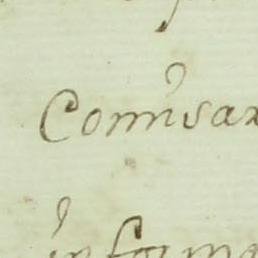 Comisar
informa